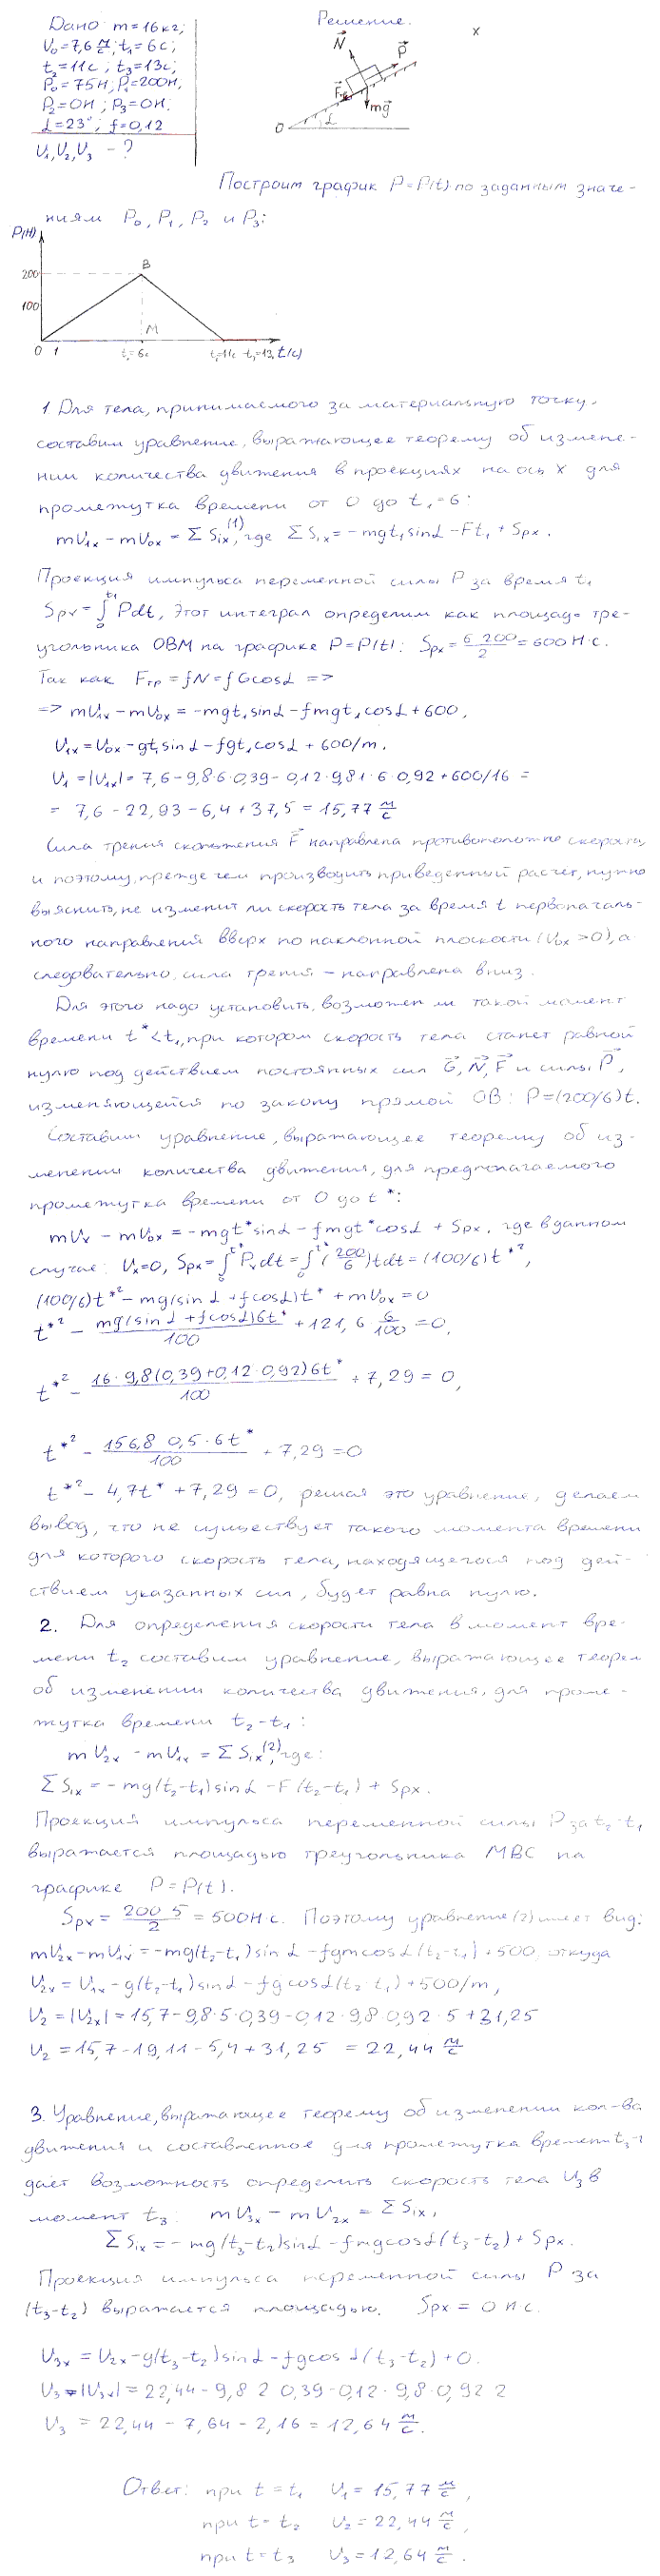 Дано: m=16кг;
V₀=7,6 м/с; t₁=6с;
t₂=11с; t₃=13с;
P₀=75Н; P₁=200Н,
P₂=0Н; P₃=0Н.
α=23°; f=0,12
V₁,V₂,V₃ - ?
Решение.
x
N
P
Fтр
mg
0
α
Построим график P=P(t) по заданным значе-
ниям P₀, P₁, P₂ и P₃:
P,(Н)
B
200
100
M
0 1 t₁=6с t₂=11с t₃=13с t(с)
1 Для тела, принимаемого за материальную точку,
составим уравнение, выражающее теорему об измене-
нии количества движения в проекциях на ось X для
промежутка времени от 0 до t₁=6:
mV₁ₓ - mV₀ₓ = ΣSᵢₓ,⁽¹⁾ где ΣSᵢₓ = -mgt₁sinα - Ft₁ + Spx.
Проекция импульса переменной силы P за время t₁
Spx = ∫₀^t₁ Pdt, Этот интеграл определим как площадь тре-
угольника OBM на графике P=P(t): Spx = 6·200/2 = 600 Н·с.
Так как Fтр = fN = fGcosα =>
=> mV₁ₓ - mV₀ₓ = -mgt₁sinα - fmgt₁cosα + 600,
V₁ₓ = V₀ₓ - gt₁sinα - fgt₁cosα + 600/m.
V₁ = |V₁ₓ| = 7,6 - 9,8·6·0,39 - 0,12·9,81·6·0,92 + 600/16 =
= 7,6 - 22,93 - 6,4 + 37,5 = 15,77 м/с
Сила трения скольжения F направлена противоположно скорости,
и поэтому, прежде чем производить приведенный расчет, нужно
выяснить, не изменит ли скорость тела за время t первоначаль-
ного направления вверх по наклонной плоскости (V₀ₓ>0), а
следовательно, сила трения - направлена вниз.
Для этого надо установить, возможен ли такой момент
времени t*<t₁, при котором скорость тела станет равной
нулю под действием постоянных сил G, N, F и силы P,
изменяющейся по закону прямой OB: P=(200/6)t.
Составим уравнение, выражающее теорему об из-
менении количества движения, для предполагаемого
промежутка времени от 0 до t*:
mVₓ - mV₀ₓ = -mgt*sinα - fmgt*cosα + Spx, где в данном
случае: Vₓ=0, Spx = ∫₀^t* Pₓdt = ∫₀^t* (200/6)tdt = (100/6)t*²,
(100/6)t*² - mg(sinα + fcosα)t* + mV₀ₓ = 0
t*² - mg(sinα + fcosα)6t*/100 + 121,6·6/100 = 0,
t*² - 16·9,8(0,39+0,12·0,92)6t*/100 + 7,29 = 0,
t*² - 156,8·0,5·6t*/100 + 7,29 = 0
t*² - 4,7t* + 7,29 = 0, решая это уравнение, делаем
вывод, что не существует такого момента времени
для которого скорость тела, находящегося под дей-
ствием указанных сил, будет равна нулю.
2. Для определения скорости тела в момент вре-
мени t₂ составим уравнение, выражающее теорем
об изменении количества движения, для проме-
жутка времени t₂-t₁:
mV₂ₓ - mV₁ₓ = ΣSᵢₓ,⁽²⁾ где:
ΣSᵢₓ = -mg(t₂-t₁)sinα - F(t₂-t₁) + Spx.
Проекция импульса переменной силы P за t₂-t₁
выражается площадью треугольника MBC на
графике P=P(t).
Spx = 200·5/2 = 500 Н·с. Поэтому уравнение (2) имеет вид:
mV₂ₓ - mV₁ₓ = -mg(t₂-t₁)sinα - fgmcosα(t₂-t₁) + 500, откуда
V₂ₓ = V₁ₓ - g(t₂-t₁)sinα - fgcosα(t₂-t₁) + 500/m,
V₂ = |V₂ₓ| = 15,7 - 9,8·5·0,39 - 0,12·9,8·0,92·5 + 31,25
V₂ = 15,7 - 19,11 - 5,4 + 31,25 = 22,44 м/с
3. Уравнение, выражающее теорему об изменении кол-ва
движения и составленное для промежутка времени t₃-t
дает возможность определить скорость тела V₃ в
момент t₃: mV₃ₓ - mV₂ₓ = ΣSᵢₓ,
ΣSᵢₓ = -mg(t₃-t₂)sinα - fmgcosα(t₃-t₂) + Spx.
Проекция импульса переменной силы P за
(t₃-t₂) выражается площадью. Spx = 0 Н·с.
V₃ₓ = V₂ₓ - g(t₃-t₂)sinα - fgcosα(t₃-t₂) + 0.
V₃ = |V₃ₓ| = 22,44 - 9,8·2·0,39 - 0,12·9,8·0,92·2
V₃ = 22,44 - 7,64 - 2,16 = 12,64 м/с.
Ответ: при t=t₁ V₁=15,77 м/с,
при t=t₂ V₂=22,44 м/с,
при t=t₃ V₃=12,64 м/с.